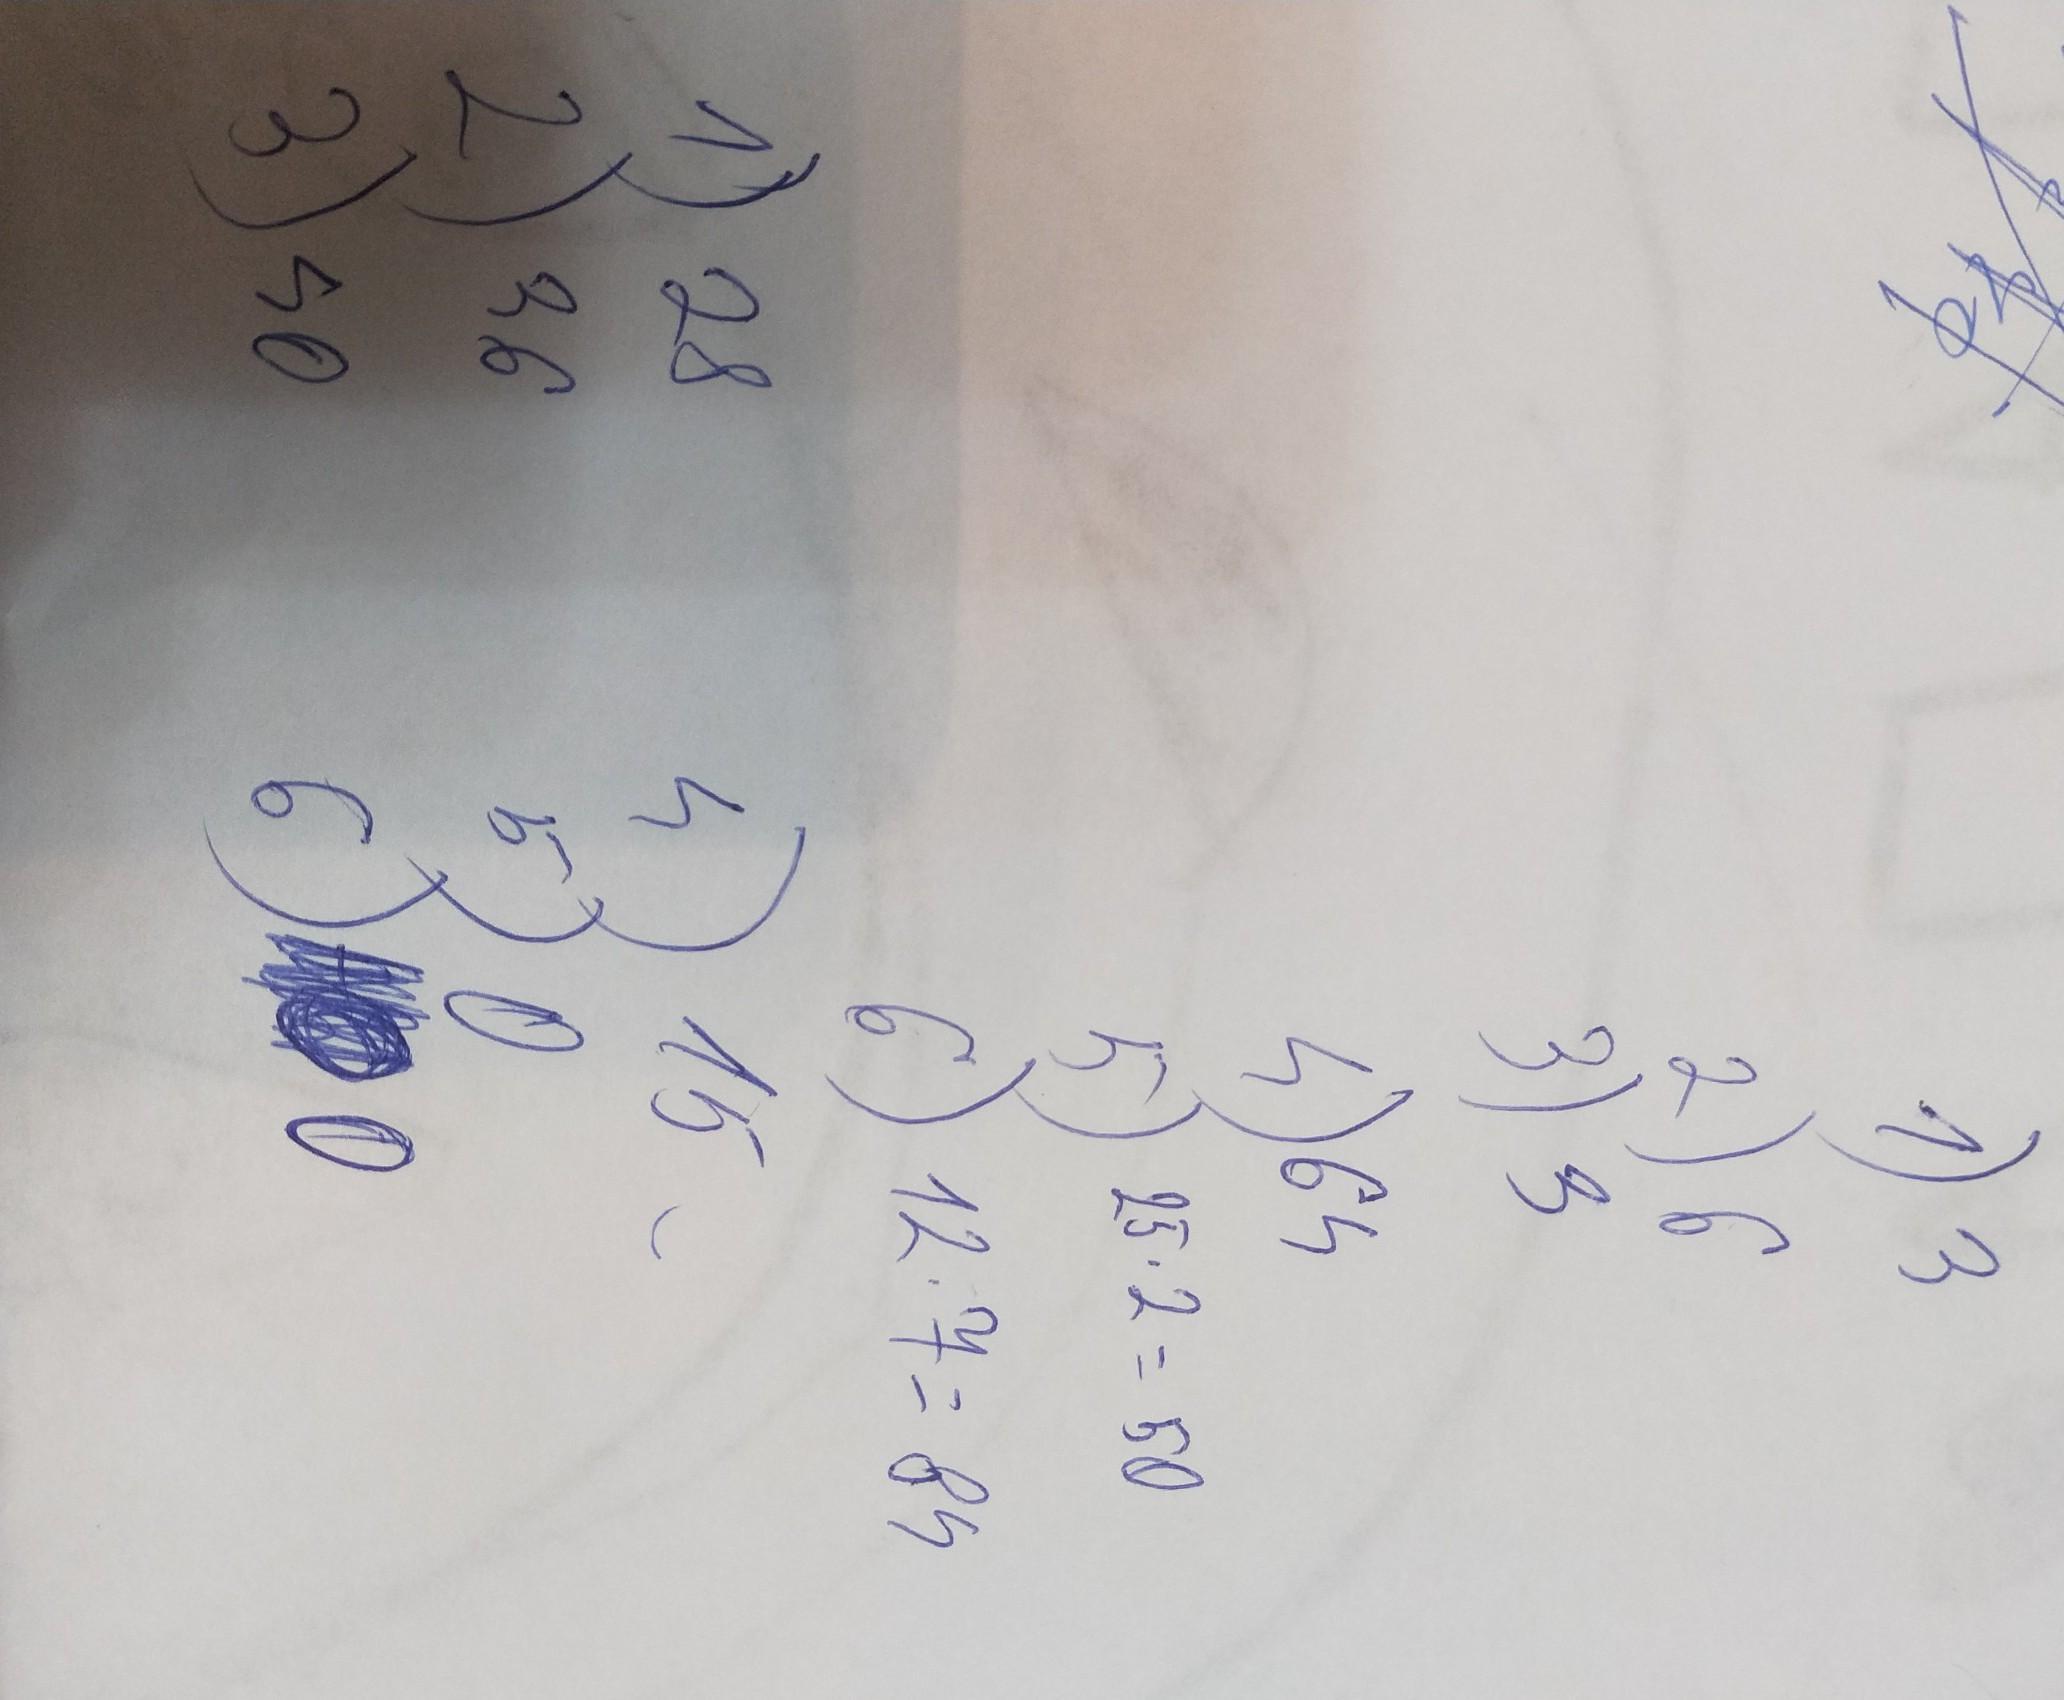 1) 3
2) 6
3) 3
4) 64
5) 25·2=50
6) 12·7=84
1) 28
2) 36
3) 40
4) 15
5) 0
6) 0